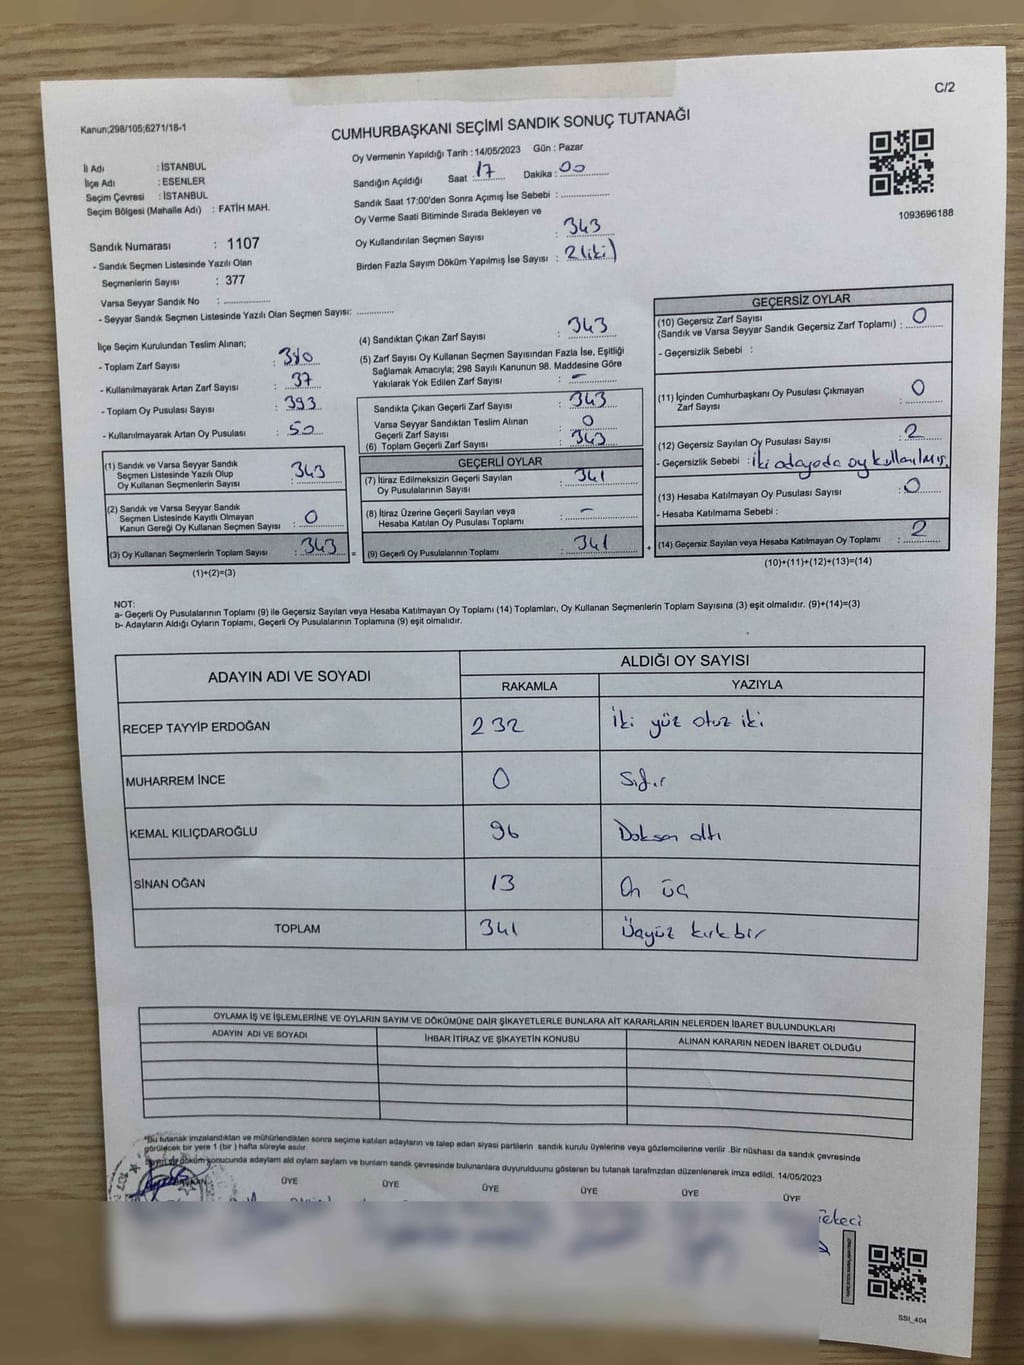 C/2
Kanun;298/105;6271/18-1
CUMHURBAŞKANI SEÇİMİ SANDIK SONUÇ TUTANAĞI
İl Adı : İSTANBUL
İlçe Adı : ESENLER
Seçim Çevresi : İSTANBUL
Seçim Bölgesi (Mahalle Adı) : FATİH MAH.
Sandık Numarası : 1107
- Sandık Seçmen Listesinde Yazılı Olan
Seçmenlerin Sayısı : 377
Varsa Seyyar Sandık No : ..................
- Seyyar Sandık Seçmen Listesinde Yazılı Olan Seçmen Sayısı: ..............
Oy Vermenin Yapıldığı Tarih : 14/05/2023 Gün : Pazar
Sandığın Açıldığı Saat : 17 Dakika : 00
Sandık Saat 17:00'den Sonra Açımış İse Sebebi : ..................
Oy Verme Saati Bitiminde Sırada Bekleyen ve
Oy Kullandırılan Seçmen Sayısı : 343
Birden Fazla Sayım Döküm Yapılmış İse Sayısı : 2 (iki)
1093696188
İlçe Seçim Kurulundan Teslim Alınan;
- Toplam Zarf Sayısı : 380
- Kullanılmayarak Artan Zarf Sayısı : 37
- Toplam Oy Pusulası Sayısı : 393
- Kullanılmayarak Artan Oy Pusulası : 50
(1) Sandık ve Varsa Seyyar Sandık
Seçmen Listesinde Yazılı Olup
Oy Kullanan Seçmenlerin Sayısı : 343
(2) Sandık ve Varsa Seyyar Sandık
Seçmen Listesinde Kayıtlı Olmayan
Kanun Gereği Oy Kullanan Seçmen Sayısı : 0
(3) Oy Kullanan Seçmenlerin Toplam Sayısı : 343
(1)+(2)=(3)
(4) Sandıktan Çıkan Zarf Sayısı : 343
(5) Zarf Sayısı Oy Kullanan Seçmen Sayısından Fazla İse, Eşitliği
Sağlamak Amacıyla; 298 Sayılı Kanunun 98. Maddesine Göre
Yakılarak Yok Edilen Zarf Sayısı : -
Sandıkta Çıkan Geçerli Zarf Sayısı : 343
Varsa Seyyar Sandıktan Teslim Alınan
Geçerli Zarf Sayısı : 0
(6) Toplam Geçerli Zarf Sayısı : 343
GEÇERLİ OYLAR
(7) İtiraz Edilmeksizin Geçerli Sayılan
Oy Pusulalarının Sayısı : 341
(8) İtiraz Üzerine Geçerli Sayılan veya
Hesaba Katılan Oy Pusulası Toplamı : -
(9) Geçerli Oy Pusulalarının Toplamı : 341
GEÇERSİZ OYLAR
(10) Geçersiz Zarf Sayısı
(Sandık ve Varsa Seyyar Sandık Geçersiz Zarf Toplamı) : 0
- Geçersizlik Sebebi :
(11) İçinden Cumhurbaşkanı Oy Pusulası Çıkmayan
Zarf Sayısı : 0
(12) Geçersiz Sayılan Oy Pusulası Sayısı : 2
- Geçersizlik Sebebi : İki adayada oy kullanılmış.
(13) Hesaba Katılmayan Oy Pusulası Sayısı : 0
- Hesaba Katılmama Sebebi :
+ (14) Geçersiz Sayılan veya Hesaba Katılmayan Oy Toplamı : 2
(10)+(11)+(12)+(13)=(14)
NOT:
a- Geçerli Oy Pusulalarının Toplamı (9) ile Geçersiz Sayılan veya Hesaba Katılmayan Oy Toplamı (14) Toplamları, Oy Kullanan Seçmenlerin Toplam Sayısına (3) eşit olmalıdır. (9)+(14)=(3)
b- Adayların Aldığı Oyların Toplamı, Geçerli Oy Pusulalarının Toplamına (9) eşit olmalıdır.
ADAYIN ADI VE SOYADI ALDIĞI OY SAYISI
RAKAMLA YAZIYLA
RECEP TAYYİP ERDOĞAN 232 İki yüz otuz iki
MUHARREM İNCE 0 Sıfır
KEMAL KILIÇDAROĞLU 96 Doksan altı
SİNAN OĞAN 13 On üç
TOPLAM 341 Üçyüz kırkbir
OYLAMA İŞ VE İŞLEMLERİNE VE OYLARIN SAYIM VE DÖKÜMÜNE DAİR ŞİKAYETLERLE BUNLARA AİT KARARLARIN NELERDEN İBARET BULUNDUKLARI
ADAYIN ADI VE SOYADI İHBAR İTİRAZ VE ŞİKAYETİN KONUSU ALINAN KARARIN NEDEN İBARET OLDUĞU
*Bu tutanak imzalandıktan ve mühürlendikten sonra seçime katılan adayların ve talep eden siyasi partilerin sandık kurulu üyelerine veya gözlemcilerine verilir. Bir nüshası da sandık çevresinde
görülecek bir yere 1 (bir ) hafta süreyle asılır.
döküm sonucunda adayların ald oyların sayların ve bunların sandk çevresinde bulunanlara duyurulduunu gösteren bu tutanak tarafmzdan düzenlenerek imza edildi. 14/05/2023
ÜYE ÜYE ÜYE ÜYE ÜYE ÜYE
SSI_404